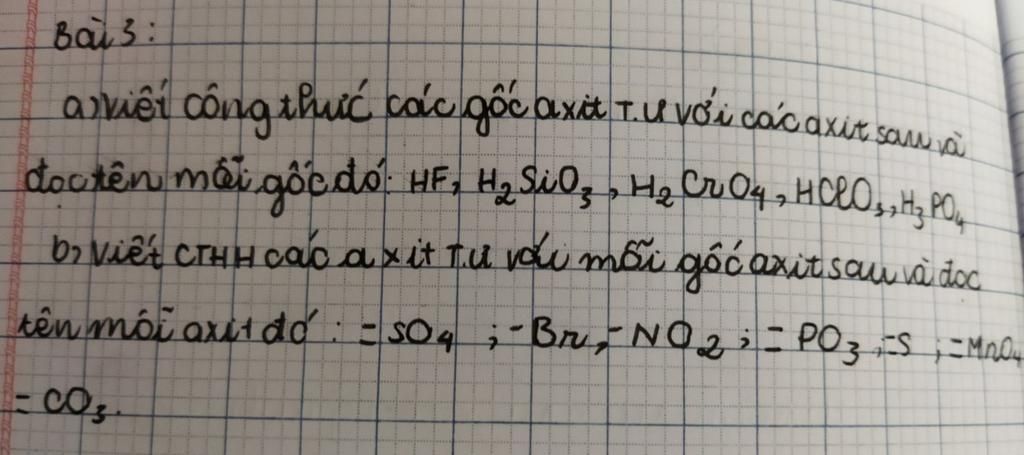 Bài 3:
a) viết công thức các gốc axit T.Ư với các axit sau và
đọc tên mỗi gốc đó: HF, H₂SiO₃, H₂CrO₄, HClO₃, H₃PO₄
b) viết CTHH các axit T.Ư với mỗi gốc axit sau và đọc
tên mỗi axit đó: =SO₄ ; -Br, -NO₂ ; =PO₃ ; =S ; =MnO₄
= CO₃.